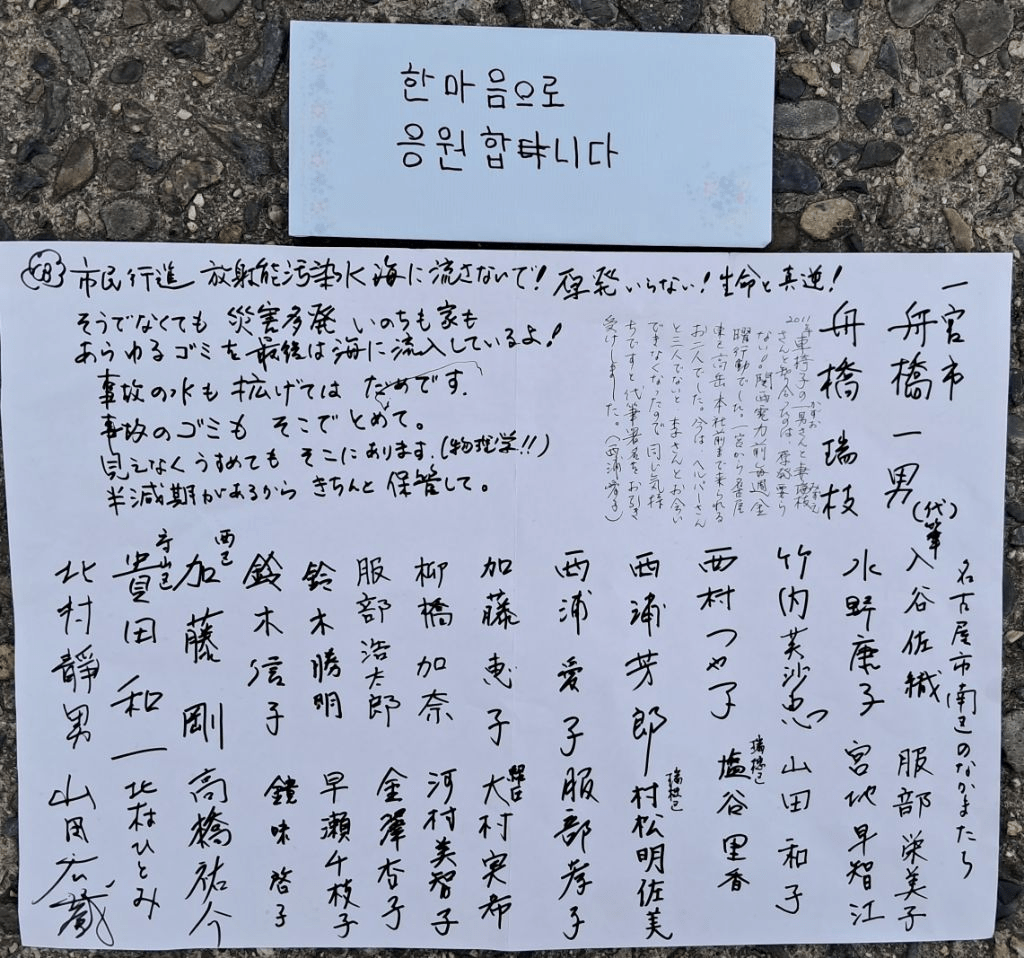 한마음으로
응원합니다
市民行進 放射能汚染水 海に流さないで! 原発いらない! 生命と真逆!
そうでなくても 災害多発 いのちも家も
あらゆるゴミを最後は海に流入しているよ!
事故の水も 拡げては だめです.
事故のゴミも そこでとめて。
見えなくうすめても そこにあります.(物理学!!)
半減期があるから きちんと 保管して。
一宮市
舟橋 一男
(代筆)
舟橋 瑞枝
2011年車椅子の一男さんと妻瑞枝
さんと知り合ったのは 原発要ら
ない!関西電力前毎週金
曜行動でした。一宮から名古屋
東と高岳 本社前まで来られる
お二人でした。今は、ヘルパーさん
と三人でないと、李さんとお会い
できなくなったので、同じ気持
ちですと代筆署名をお引き
受けしました。(西浦愛子)
名古屋市(南区)のなかまたち
入谷佐織 服部栄美子
水野康子 宮地早智江
竹内芙沙恵 山田和子
西村つや子 瑞穂区 塩谷里香
西浦芳郎 瑞穂区 村松明佐美
西浦愛子 服部孝子
加藤恵子 大村実希
柳橋加奈 河村美智子
服部浩太郎 金澤杏子
鈴木勝明 早瀬千枝子
鈴木信子 鏡味啓子
西区 加藤剛 高橋祐介
守山区 貴田和一 北村ひとみ
北村靜男 山田